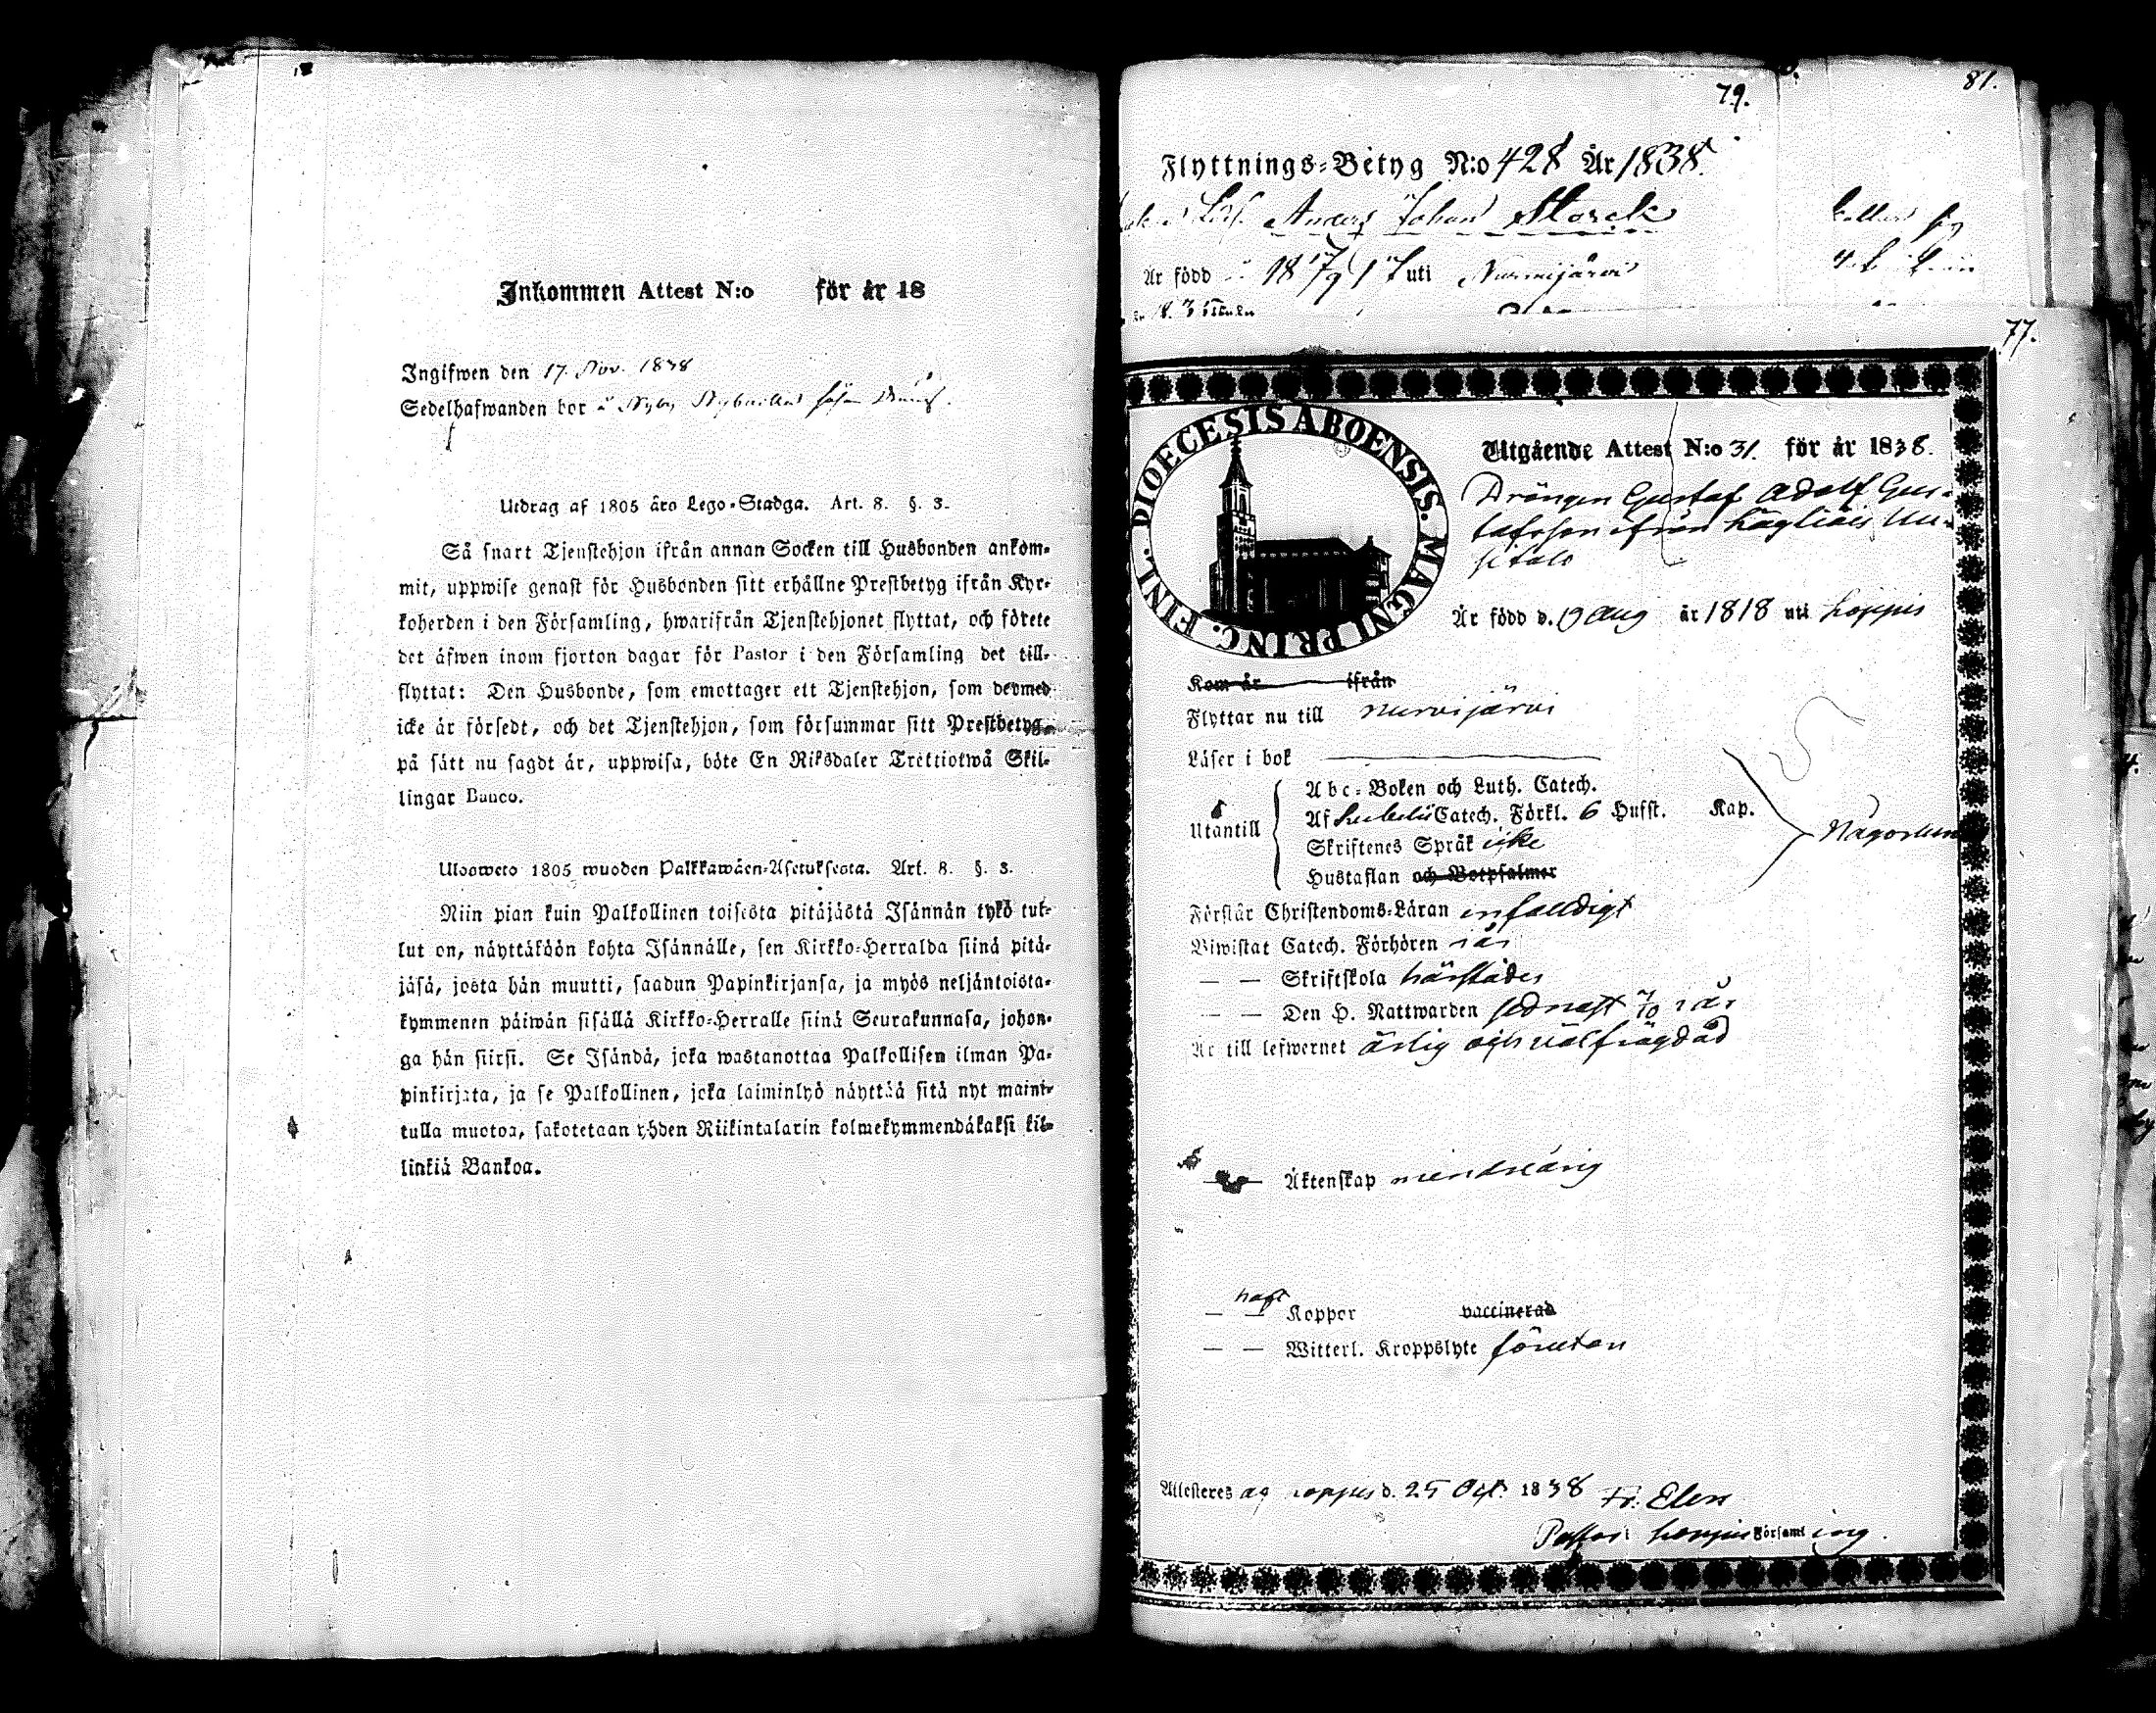 Inkommen Attest N:o för år 18
Ingifwen den 17. Nov. 1838
Sedelhafwanden bor
Utdrag af 1805 års Lego-Stadga. Art. 8. §. 3.
Så snart Tjenstehjon ifrån annan Socken till Husbonden ankom-
mit, uppwise genast för Husbonden sitt erhållne Prestbetyg ifrån Kyr-
koherden i den Församling, hwarifrån Tjenstehjonet flyttat, och förete
det äfwen inom fjorton dagar för Pastor i den Församling det till-
flyttat: Den Husbonde, som emottager ett Tjenstehjon, som dermed
icke är försedt, och det Tjenstehjon, som försummar sitt Prestbetyg,
på sätt nu sagdt är, uppwisa, böte En Riksdaler Trettiotwå Skil-
lingar Banco.
Ulosweto 1805 wuoden Palkkawäen-Asetuksesta. Art. 8. §. 3.
Niin pian kuin Palkollinen toisesta pitäjästä Isännän tykö tul-
lut on, näyttäköön kohta Isännälle, sen Kirkko-Herralda siinä pitä-
jäsä, josta hän muutti, saadun Papinkirjansa, ja myös neljäntoista-
kymmenen päiwän sisällä Kirkko-Herralle siinä Seurakunnasa, johon-
ga hän siirsi. Se Isändä, joka wastanottaa Palkollisen ilman Pa-
pinkirjata, ja se Palkollinen, joka laiminlyö näyttää sitä nyt maini-
tulla muotoa, sakotetaan yhden Riikintalarin kolmekymmendäkaksi kil-
linkiä Bankoa.
81.
79.
Flyttnings-Betyg N:o 428 År 1838.
Anders Johan Storck
Är född 18 17/9 17 uti Nurmijärvi
77.
DIOECESIS ABOENSIS. MAGNI PRINC. FINL.
Utgående Attest N:o 31. för år 1838.
Drängen Gustaf Adolf Gus-
tafsson ifrån
Är född d. 19 Aug år 1818 uti Loppis
Kom år ifrån
Flyttar nu till Nurmijärvi
Läser i bok
Utantill
Abc-Boken och Luth. Catech.
Af Catech. Förkl. 6 Hufst. Kap.
Skriftenes Språk icke
Hustaflan och Botpsalmer
Någorlun
Förstår Christendoms-Läran enfalldigt
Biwistat Catech. Förhören i år
— — Skriftskola härstädes
— — Den H. Nattwarden sednast 7/10 i år
Är till lefwernet ärlig och välfrägdad
Äktenskap
— — haft Koppor vaccinerad
— — Witterl. Kroppslyte förutan
Attesteres af Loppis d. 25 Oct. 1838
Pastor i Loppis Församling.